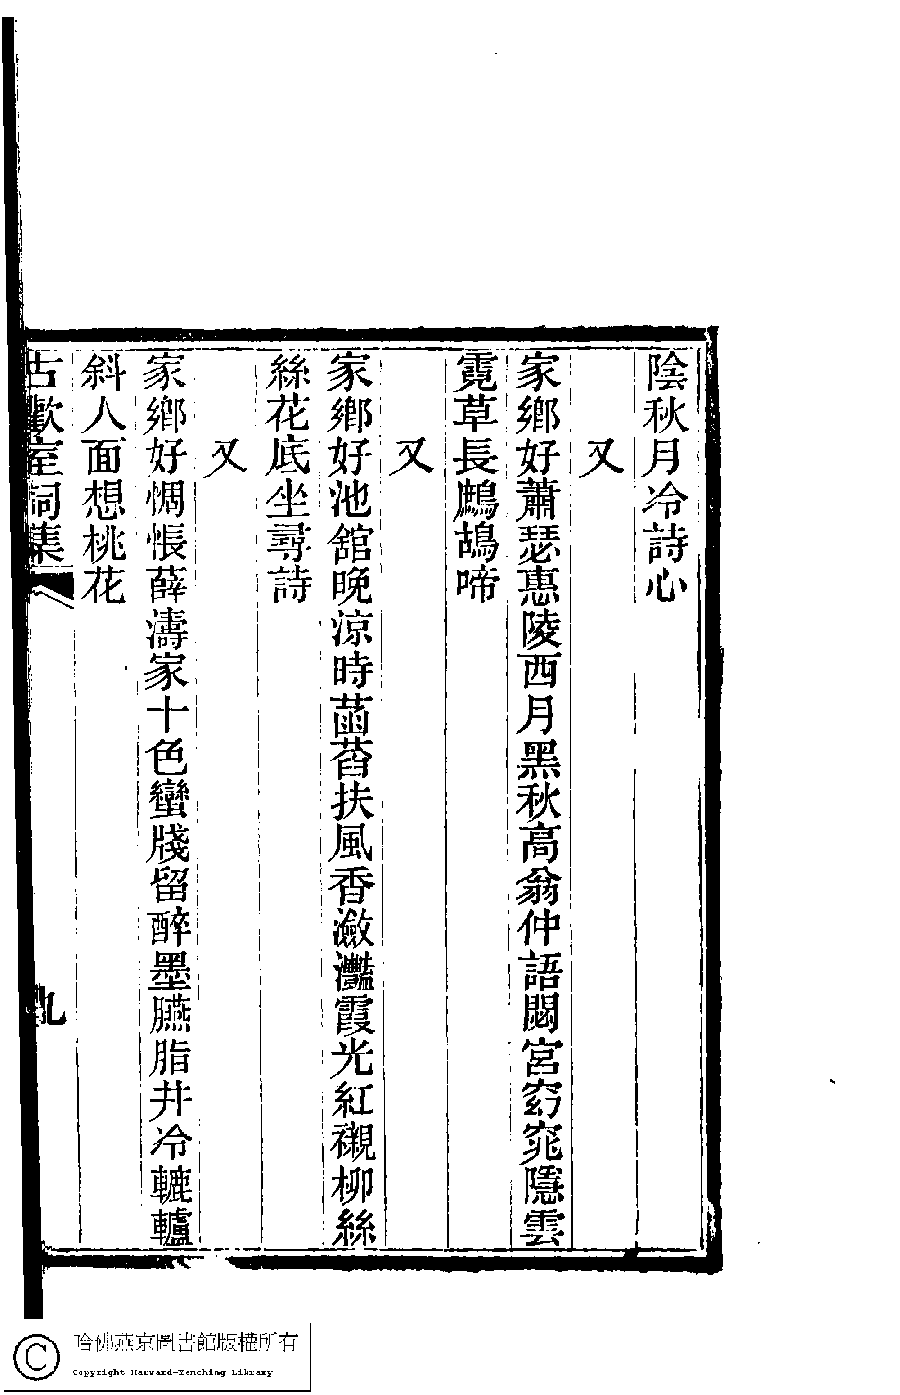 陰秋月冷詩心
又
家鄉好蕭瑟惠陵西月黑秋高翁仲語閟宮窈窕隱雲
霓草長鷓鴣啼
又
家鄉好池館晚涼時菡萏扶風香瀲灩霞光紅襯柳絲
絲花底坐尋詩
又
家鄉好惆悵薛濤家十色蠻牋留醉墨臙脂井冷轆轤
斜人面想桃花
古歡室詞集
九
哈佛燕京圖書館版權所有
Copyright Harvard-Yenching Library